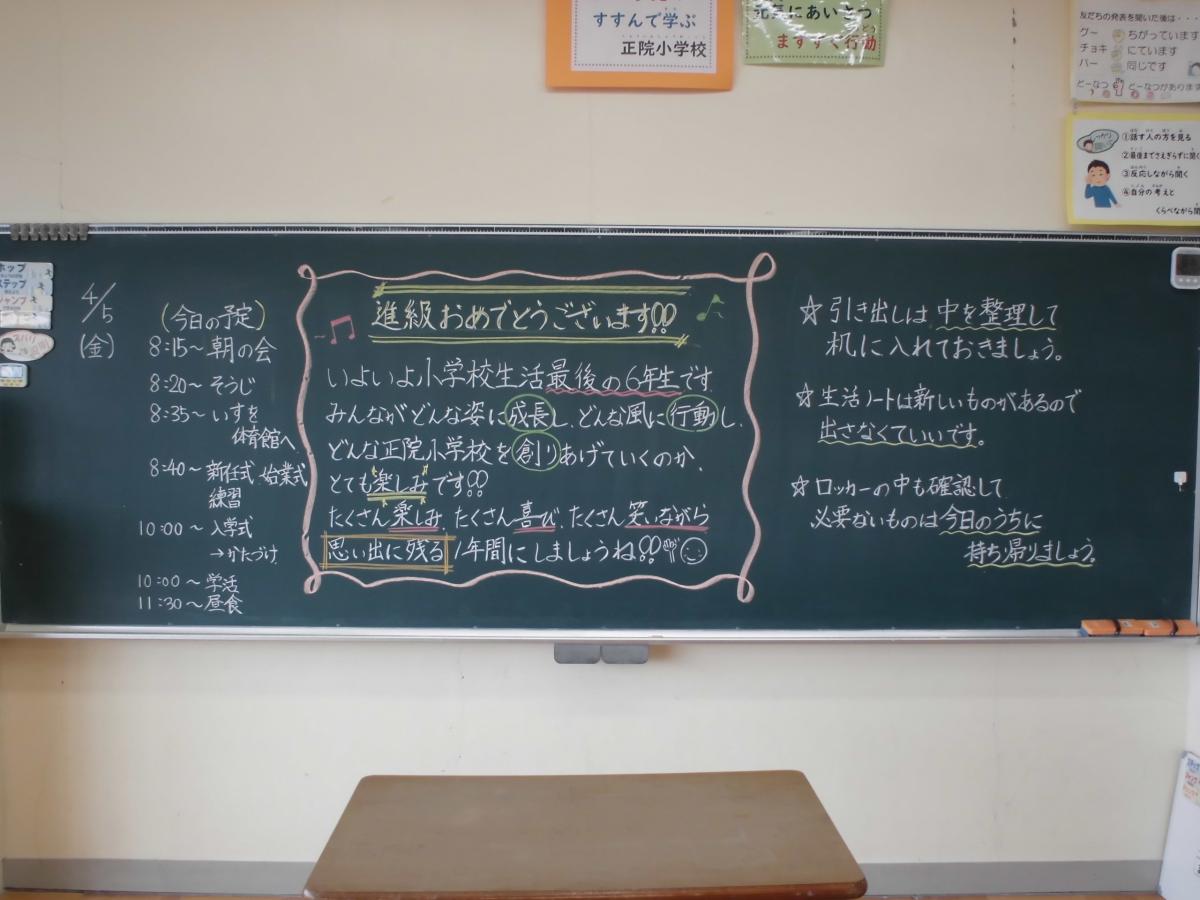 すすんで学ぶ
正院小学校
元気にあいさつ
まっすぐ行動
友だちの発表を聞いた後は・・・
グー ちがっています
チョキ にています
パー 同じです
どーなつ どーなつがあります
①話す人の方を見る
②最後までさえぎらずに聞く
③反応しながら聞く
④自分の考えと
くらべながら聞
ホップ
ステップ
ジャンプ
4/5
(金)
(今日の予定)
8:15〜朝の会
8:20〜そうじ
8:35〜いすを
体育館へ
8:40〜新任式、始業式
練習
10:00〜入学式
→かたづけ
10:00〜学活
11:30〜昼食
進級おめでとうございます!!
いよいよ小学校生活最後の6年生です
みんながどんな姿に成長し、どんな風に行動し、
どんな正院小学校を創りあげていくのか、
とても楽しみです!!
たくさん楽しみ、たくさん喜び、たくさん笑いながら
思い出に残る1年間にしましょうね!!
☆引き出しは中を整理して
机に入れておきましょう。
☆生活ノートは新しいものがあるので
出さなくていいです。
☆ロッカーの中も確認して
必要ないものは今日のうちに
持ち帰りましょう。